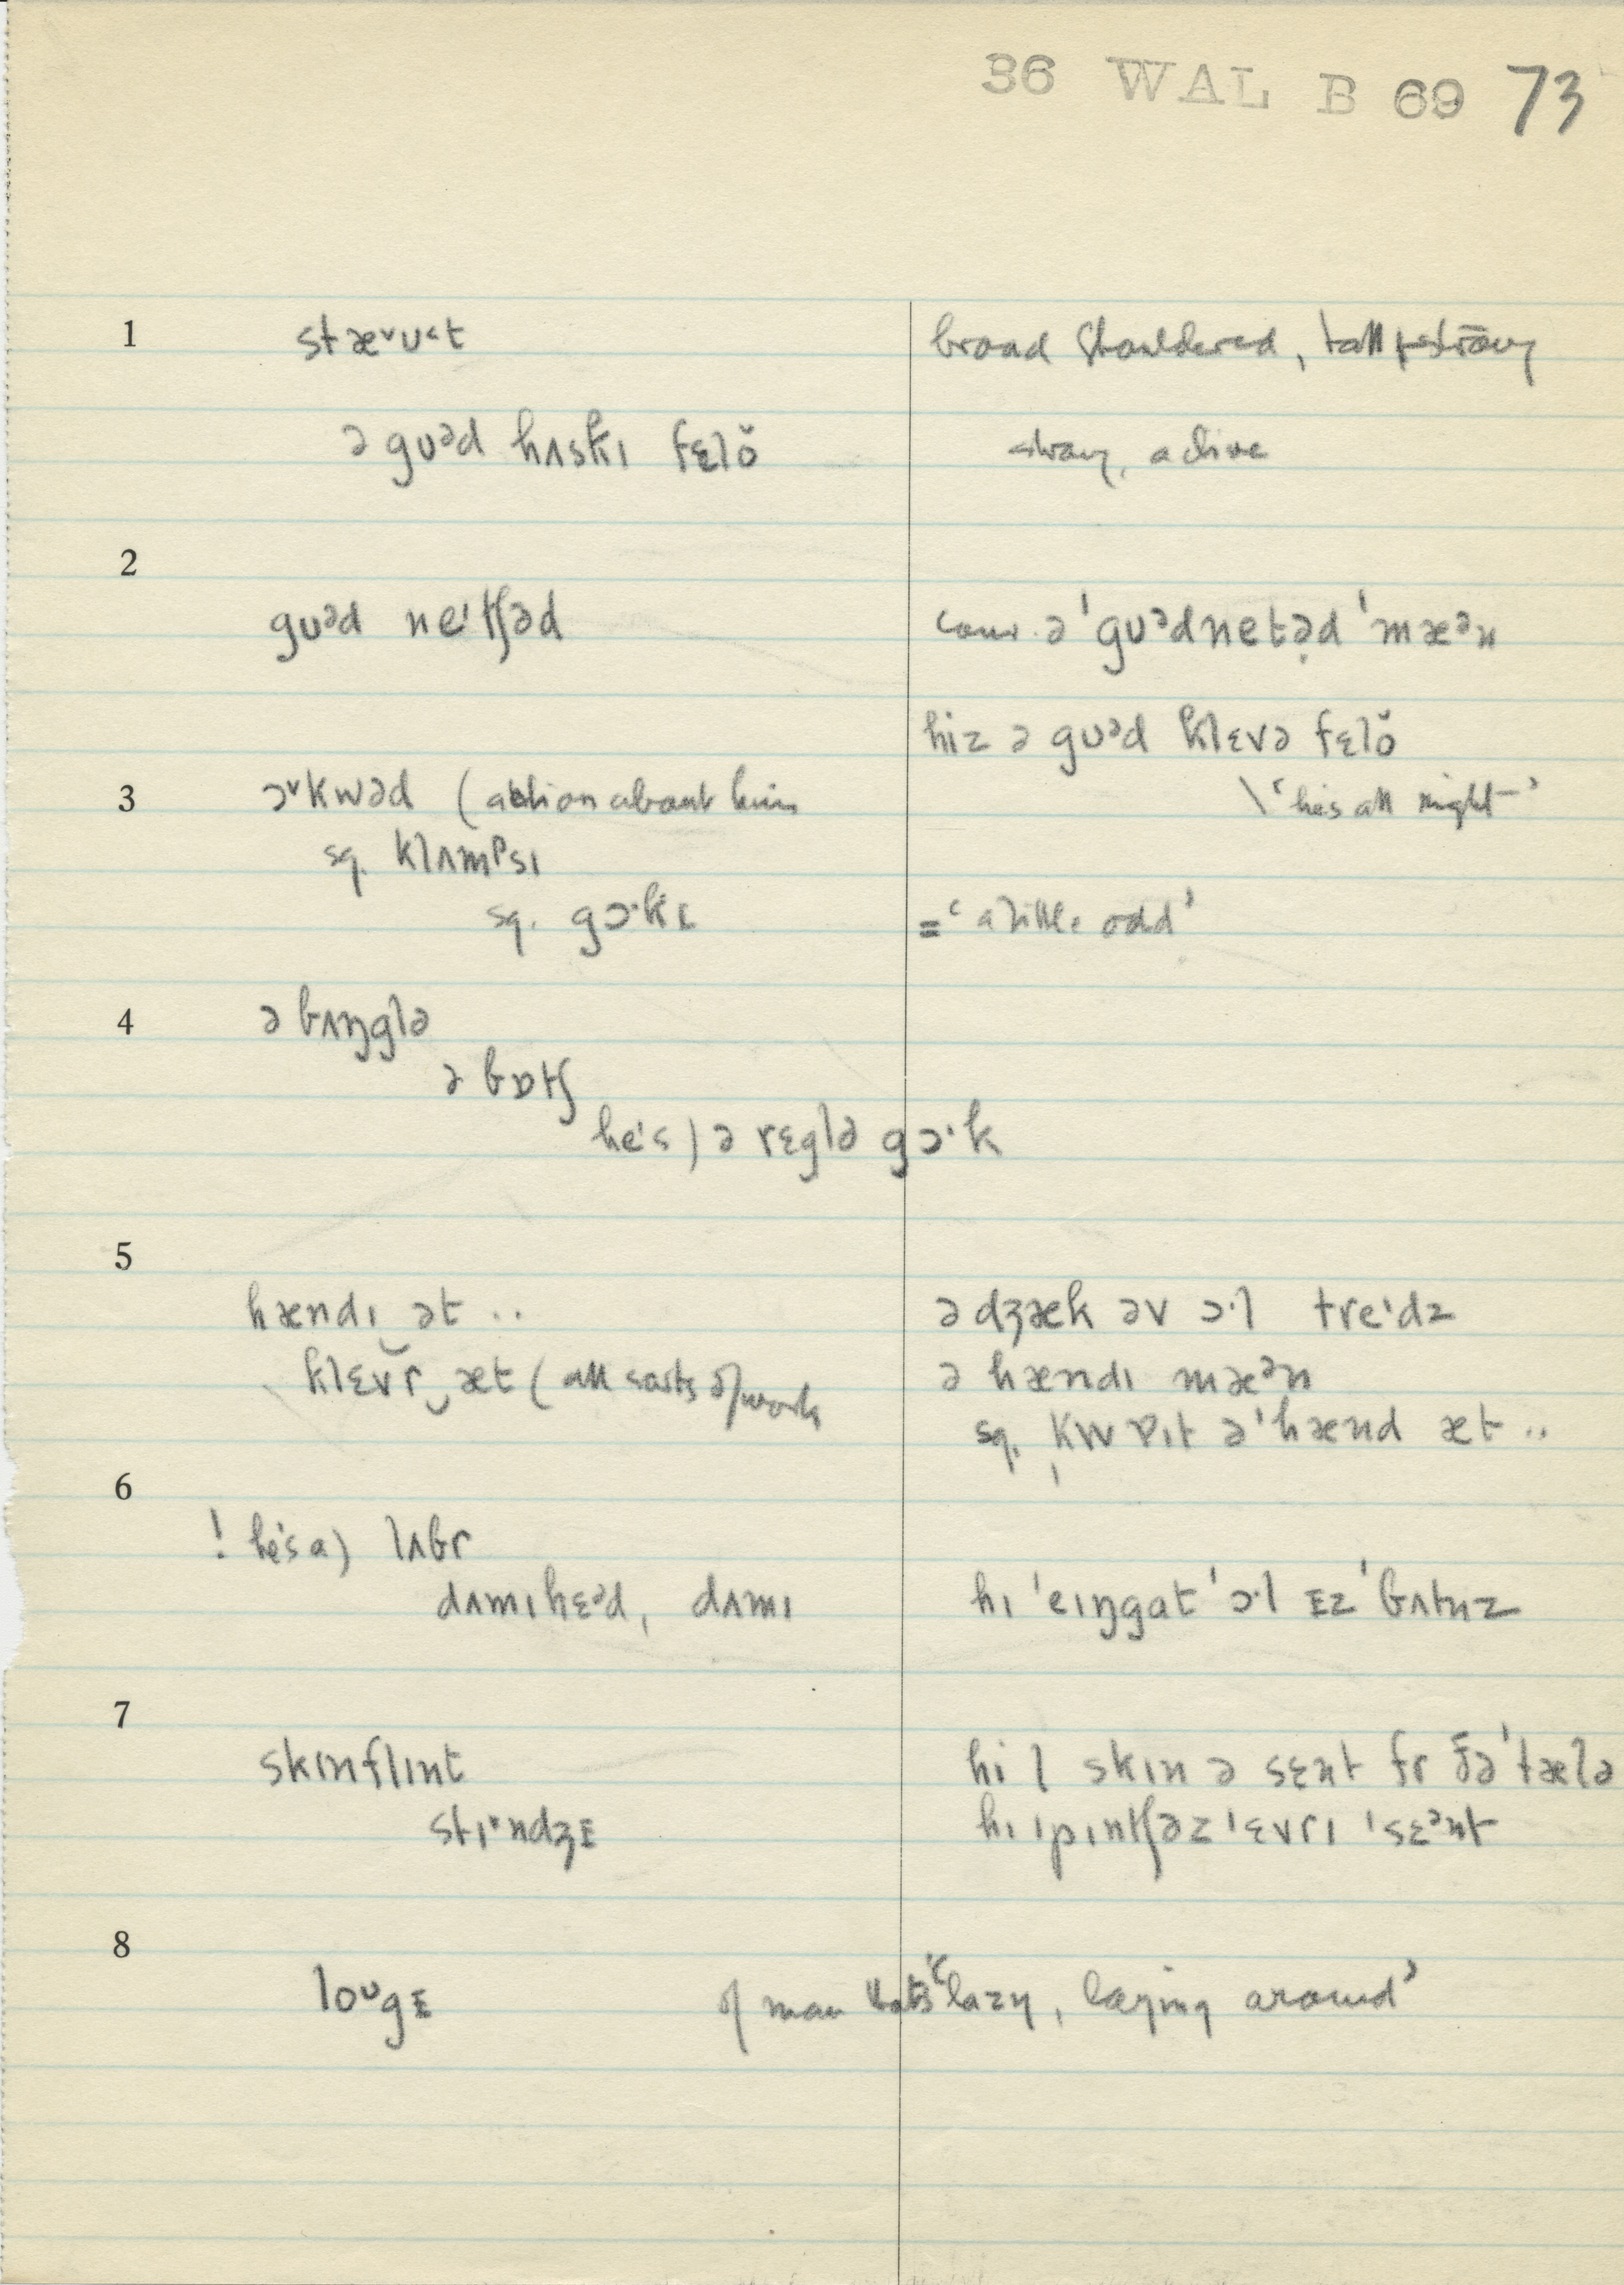 36 WAL B 69 73
1 stæ˅ʊ˂t broad shouldered, tall + strong
ə gʊᵊd hʌskɪ fɛlŏ strong, active
2
gʊᵊd neᶦtʃəd conv. ə ˈgʊᵊdnetə̣d ˈmæᵊn
hiz ə gʊᵊd klɛvə fɛlŏ
3 ɔ˅kwəd (action about him \ ‘he's all right’
sq. klʌmᵖsɪ
sq. gɔ·kɪ = ‘a little odd’
4 ə bʌŋglə
ə bɒtʃ
he's) ə rɛglə gɔ·k
5
hændɪ ət .. ə dʒæk əv ɔ·l treᶦdz
klɛvr̆‿æt (all sorts of work ə hændɪ mæᵊn
sq. kwɒɪt ə ˈhænd æt ..
6
! he's a) lʌbr
dʌmɪhɛᵊd, dʌmɪ hɪ ˈeɪŋgat ˈɔ·l ɪz ˈbʌtnz
7
skɪnflɪnt hi l skɪn ə sɛnt fr ðə ˈtælə
stɪ·ndʒɪ hɪ ˈpɪntʃəz ˈɛvrɪ ˈsɛᵊnt
8
loᶷgɪ of man that's “lazy, laying around”